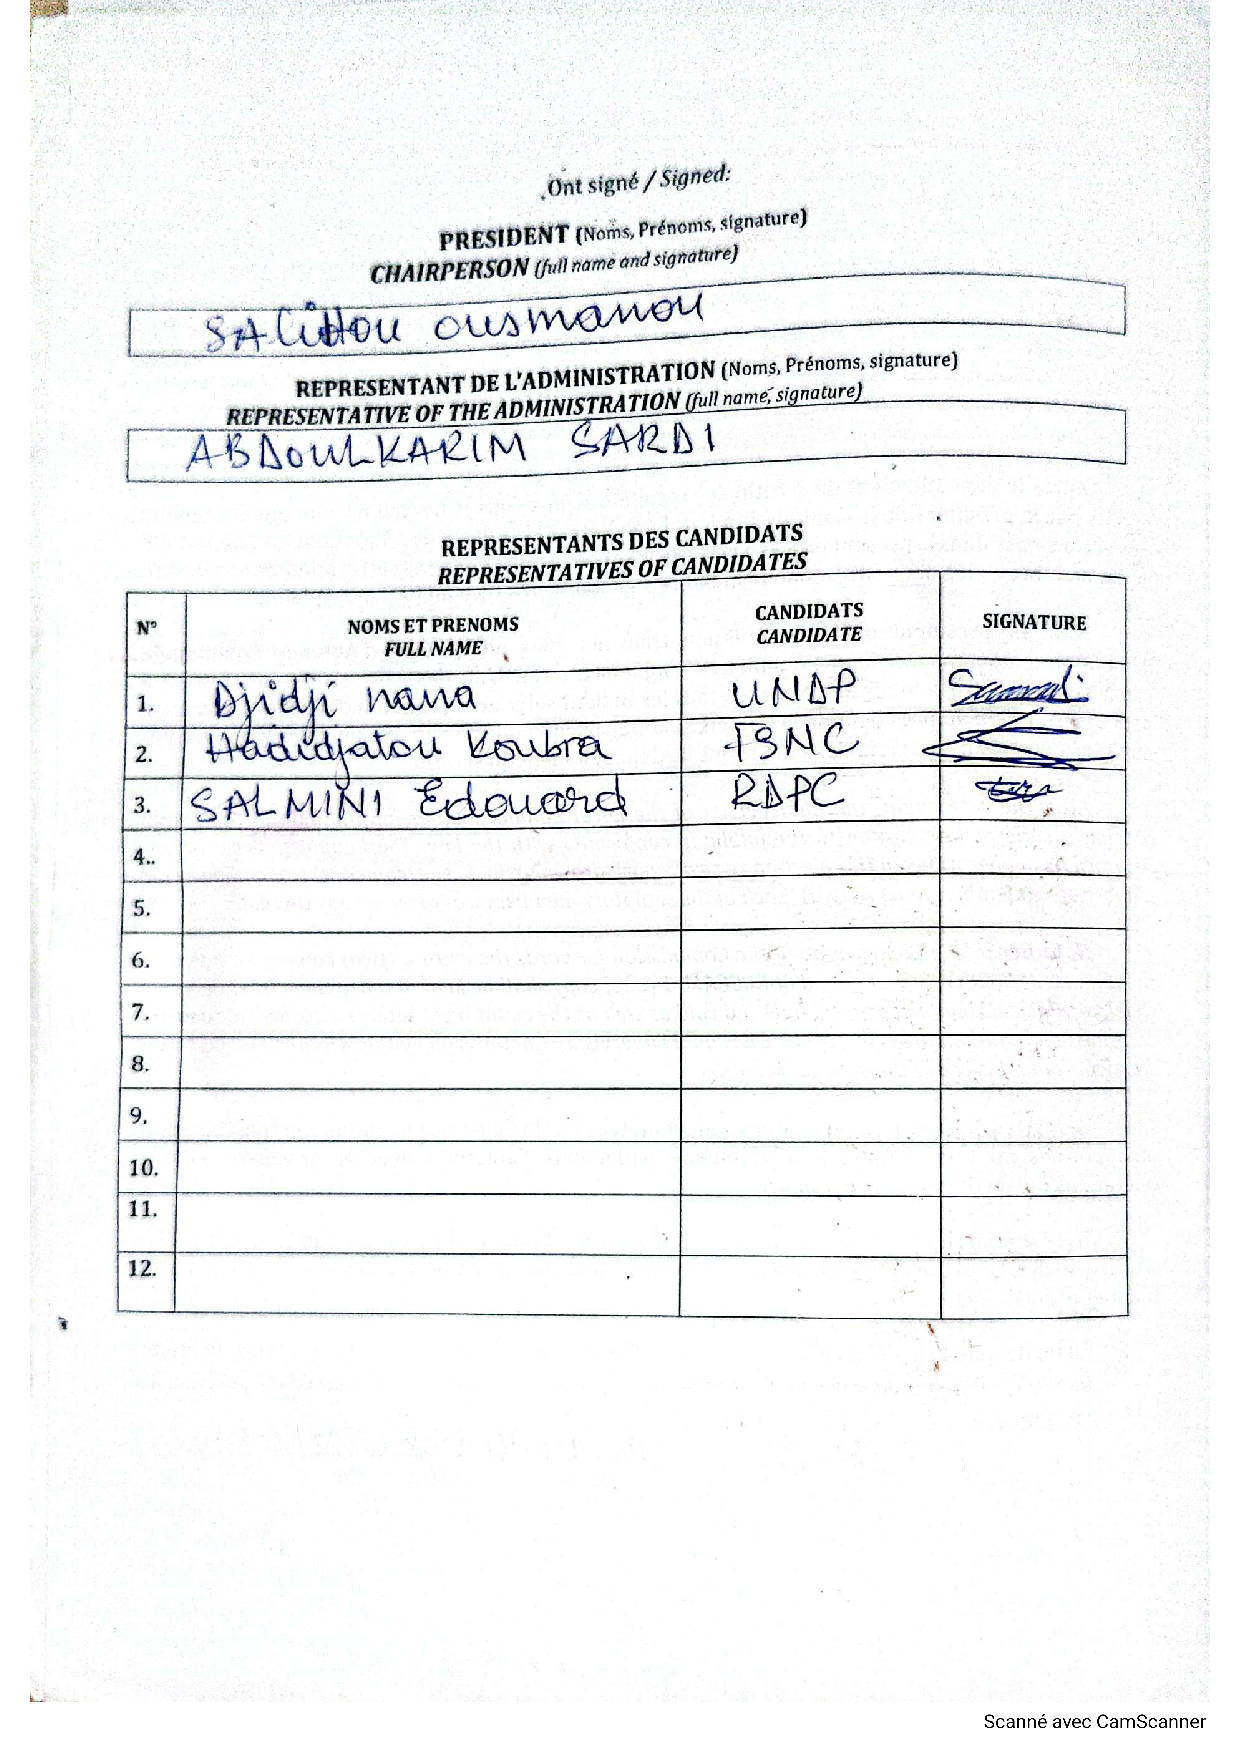 Ont signé / Signed:
PRESIDENT (Noms, Prénoms, signature)
CHAIRPERSON (full name and signature)
SAlihou ousmanou
REPRESENTANT DE L'ADMINISTRATION (Noms, Prénoms, signature)
REPRESENTATIVE OF THE ADMINISTRATION (full name, signature)
ABDOULKARIM SARDI
REPRESENTANTS DES CANDIDATS
REPRESENTATIVES OF CANDIDATES
N° NOMS ET PRENOMS FULL NAME CANDIDATS CANDIDATE SIGNATURE
1. Djidji nana UNDP
2. Hadidjatou Koubra FSNC
3. SALMINI Edouard RDPC
4..
5.
6.
7.
8.
9.
10.
11.
12.
Scanné avec CamScanner